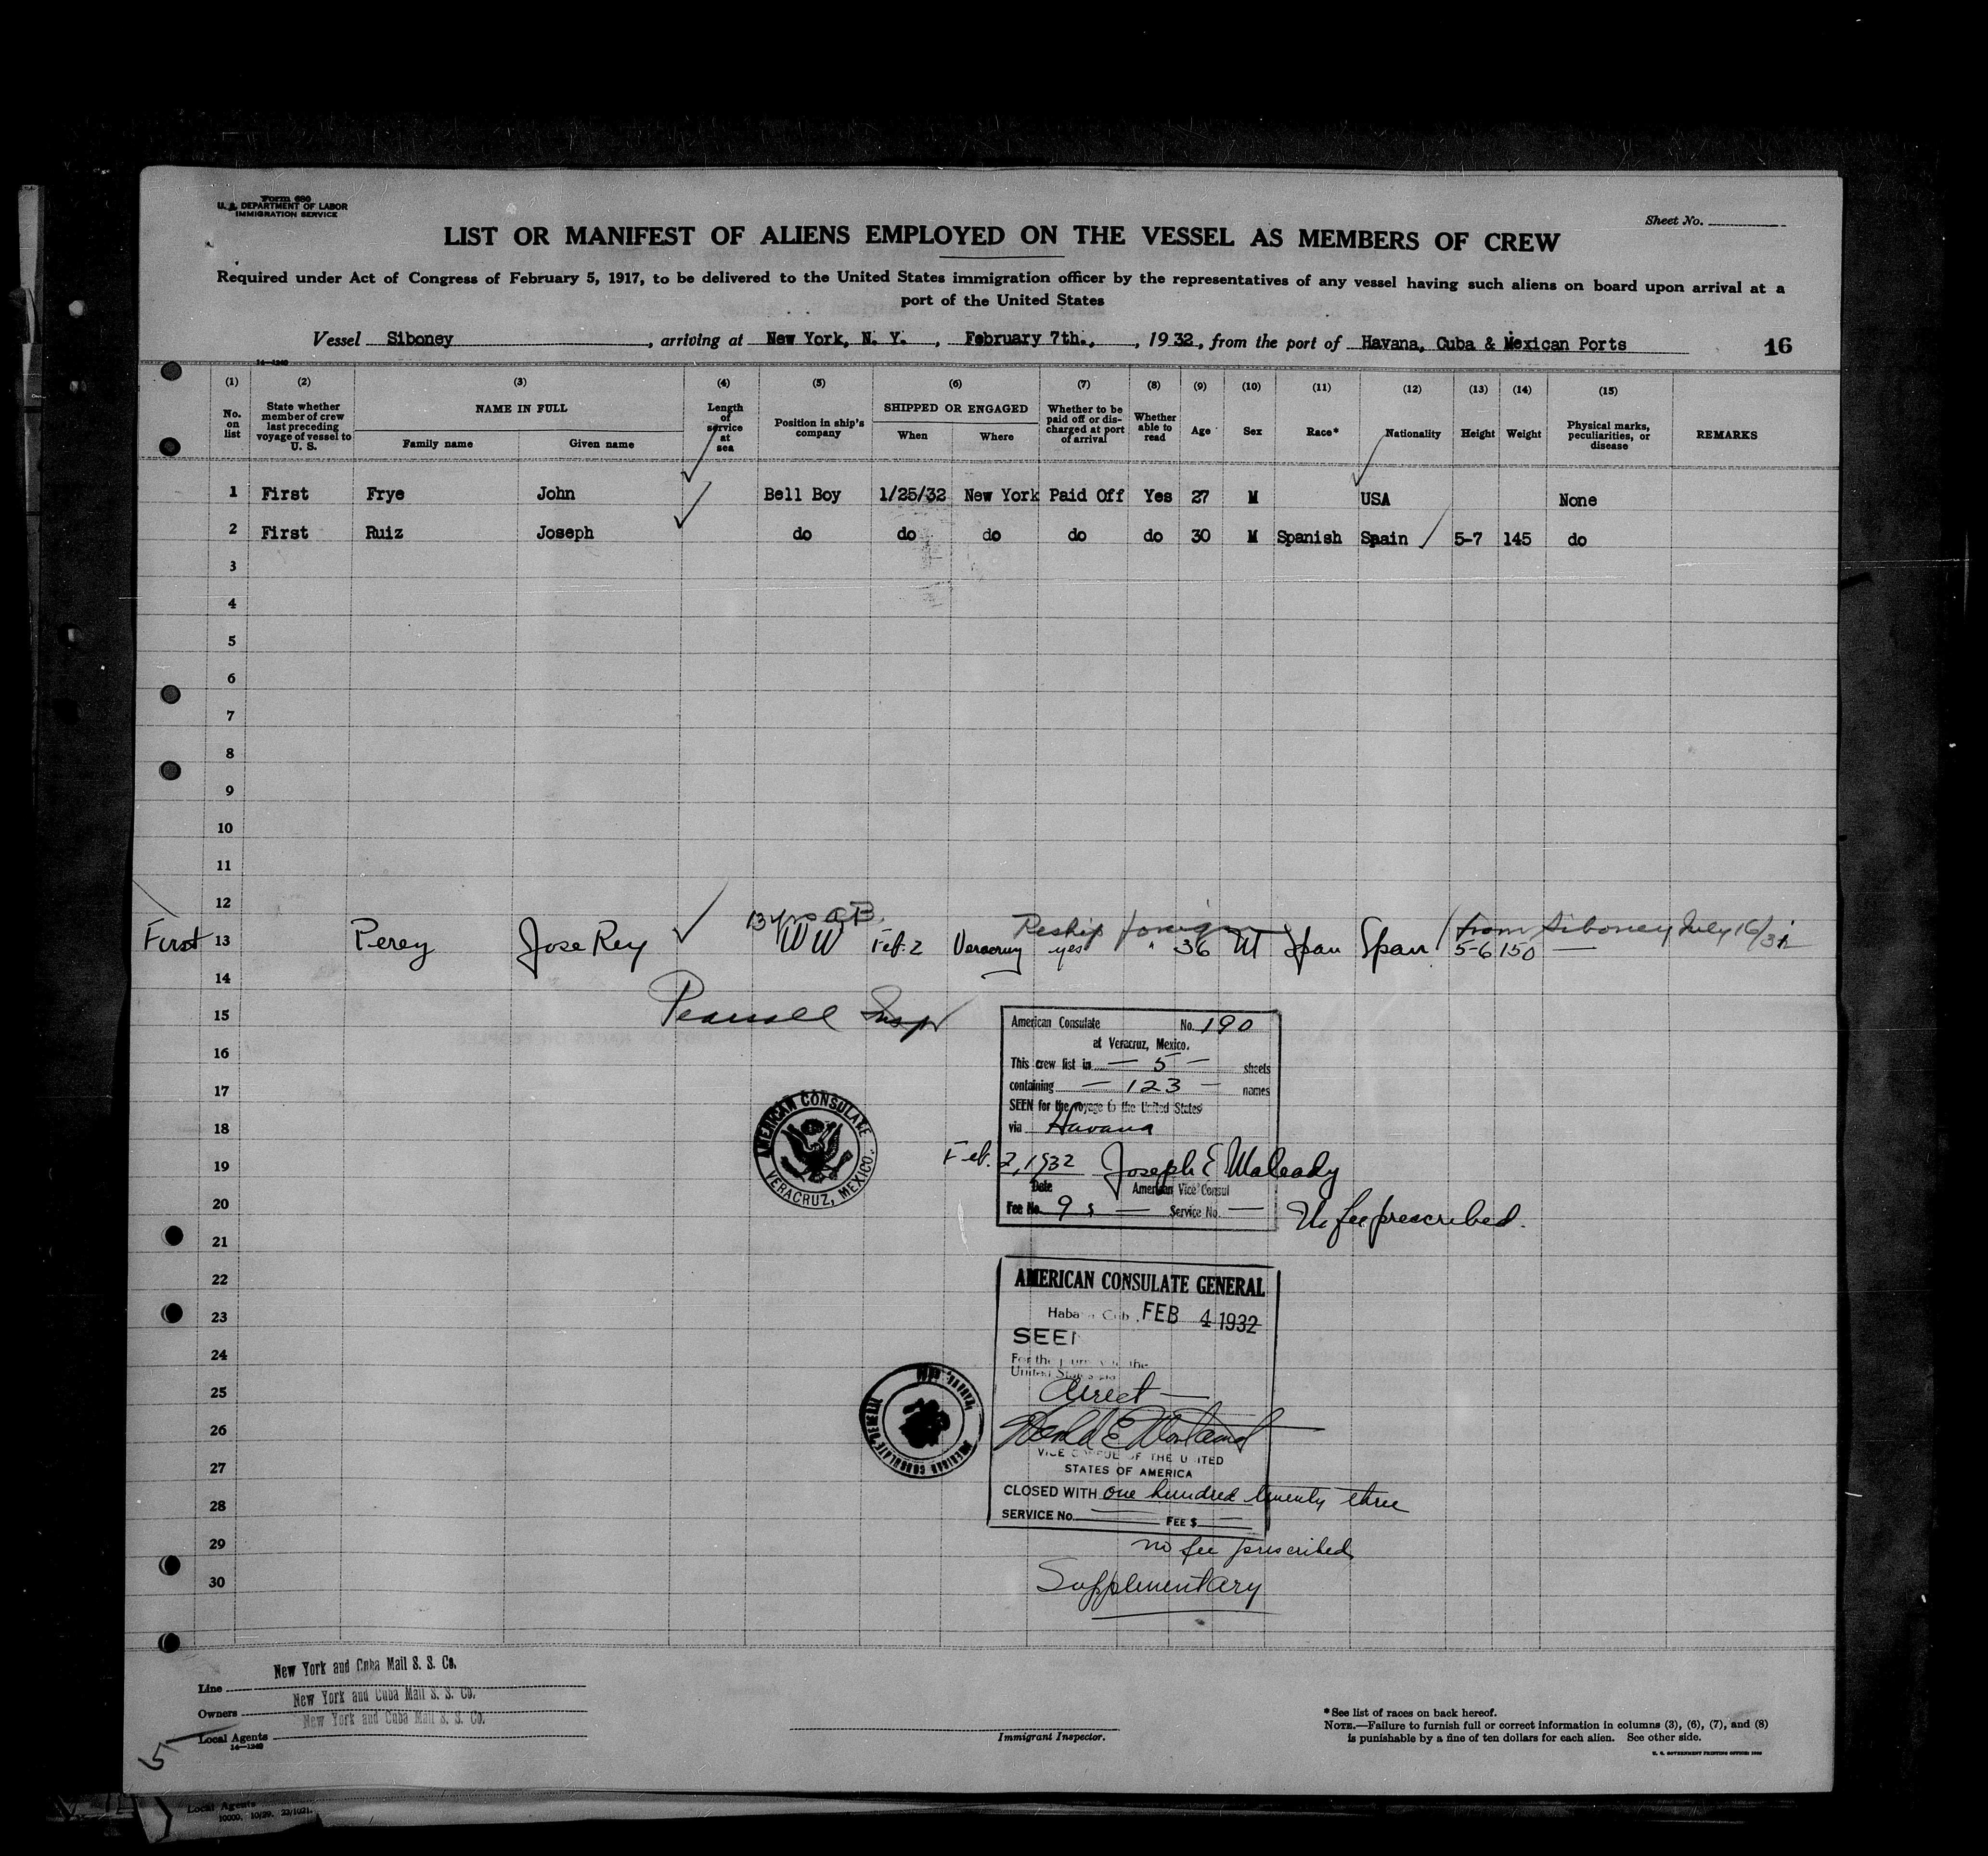 Form 680
U. S. DEPARTMENT OF LABOR
IMMIGRATION SERVICE
Sheet No.
LIST OR MANIFEST OF ALIENS EMPLOYED ON THE VESSEL AS MEMBERS OF CREW
Required under Act of Congress of February 5, 1917, to be delivered to the United States immigration officer by the representatives of any vessel having such aliens on board upon arrival at a
port of the United States
Vessel Siboney, arriving at New York, N. Y., February 7th., 1932, from the port of Havana, Cuba & Mexican Ports 16
14-1240
(1) (2) (3) (4) (5) (6) (7) (8) (9) (10) (11) (12) (13) (14) (15)
No. on list
State whether member of crew last preceding voyage of vessel to U. S.
NAME IN FULL
Family name Given name
Length of service at sea
Position in ship's company
SHIPPED OR ENGAGED
When Where
Whether to be paid off or discharged at port of arrival
Whether able to read
Age
Sex
Race*
Nationality
Height
Weight
Physical marks, peculiarities, or disease
REMARKS
1 First Frye John Bell Boy 1/25/32 New York Paid Off Yes 27 M USA None
2 First Ruiz Joseph do do do do do 30 M Spanish Spain 5-7 145 do
3
4
5
6
7
8
9
10
11
12
13 yrs AB
Reship foreign from Siboney July 16/31
First 13 Perey Jose Rey WW Feb. 2 Veracruz yes " 36 M Span Span 5-6 150 —
14
15
Insp
16
17
18
19
20
21
22
23
24
25
26
27
28
29
30
American Consulate No. 190
at Veracruz, Mexico.
This crew list in — 5 — sheets
containing — 123 — names
SEEN for the voyage to the United States
via Havana
Feb. 2, 1932 Joseph E Maleady
Date American Vice Consul
Fee No. 9 $ — Service No. —
No fee prescribed.
AMERICAN CONSULATE
VERACRUZ, MEXICO.
AMERICAN CONSULATE GENERAL
FEB 4 1932
For the
United States
direct —
STATES OF AMERICA
CLOSED WITH one hundred twenty three
SERVICE No. FEE $
no fee prescribed
Supplementary
AMERICAN CONSULATE GENERAL
Line New York and Cuba Mail S. S. Co.
Owners New York and Cuba Mail S. S. Co.
Local Agents New York and Cuba Mail S. S. Co.
14-1240
5
Immigrant Inspector.
*See list of races on back hereof.
NOTE.—Failure to furnish full or correct information in columns (3), (6), (7), and (8)
is punishable by a fine of ten dollars for each alien. See other side.
U. S. GOVERNMENT PRINTING OFFICE:
Local Agents
10000. 10/29. 23/1021.